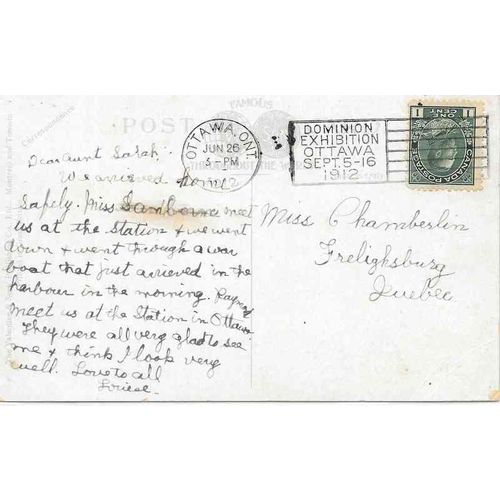 Correspondence
POST
FAMOUS
THROUGHOUT THE
OTTAWA, ONT.
JUN 26
5-PM
1912
DOMINION
EXHIBITION
OTTAWA
SEPT. 5-16
1912
1 CENT 1
CANADA POSTAGE
Dear Aunt Sarah,
We arrieved home
safely. Miss Sanborn meet
us at the station & we went
down & went through a war
boat that just arrieved in the
harbour in the morning.
meet us at the Station in Ottawa
They were all very glad to see
me & think I look very
well. Love to all
Miss Chamberlin
Freligksburg
Quebec